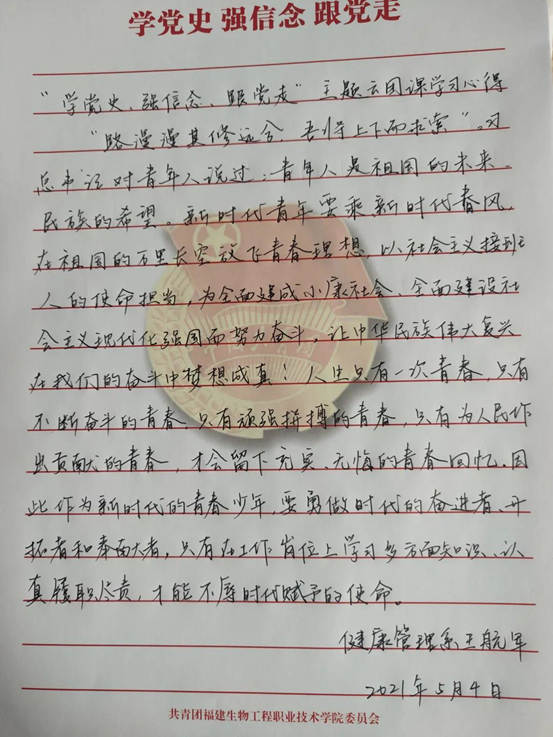 学党史 强信念 跟党走
“学党史、强信念、跟党走”主题云团课学习心得
“路漫漫其修远兮，吾将上下而求索”。习
总书记对青年人说过：青年人是祖国的未来、
民族的希望。新时代青年要乘新时代春风，
在祖国的万里长空放飞青春理想，以社会主义接班
人的使命担当，为全面建成小康社会、全面建设社
会主义现代化强国而努力奋斗，让中华民族伟大复兴
在我们的奋斗中梦想成真！人生只有一次青春，只有
不断奋斗的青春、只有顽强拼搏的青春，只有为人民作
出贡献的青春，才会留下充实、无悔的青春回忆。因
此作为新时代的青春少年，要勇做时代的奋进者、开
拓者和奉献者，只有在工作岗位上学习多方面知识、认
真履职尽责，才能不辱时代赋予的使命。
健康管理系王航军
2021年5月4日
共青团福建生物工程职业技术学院委员会